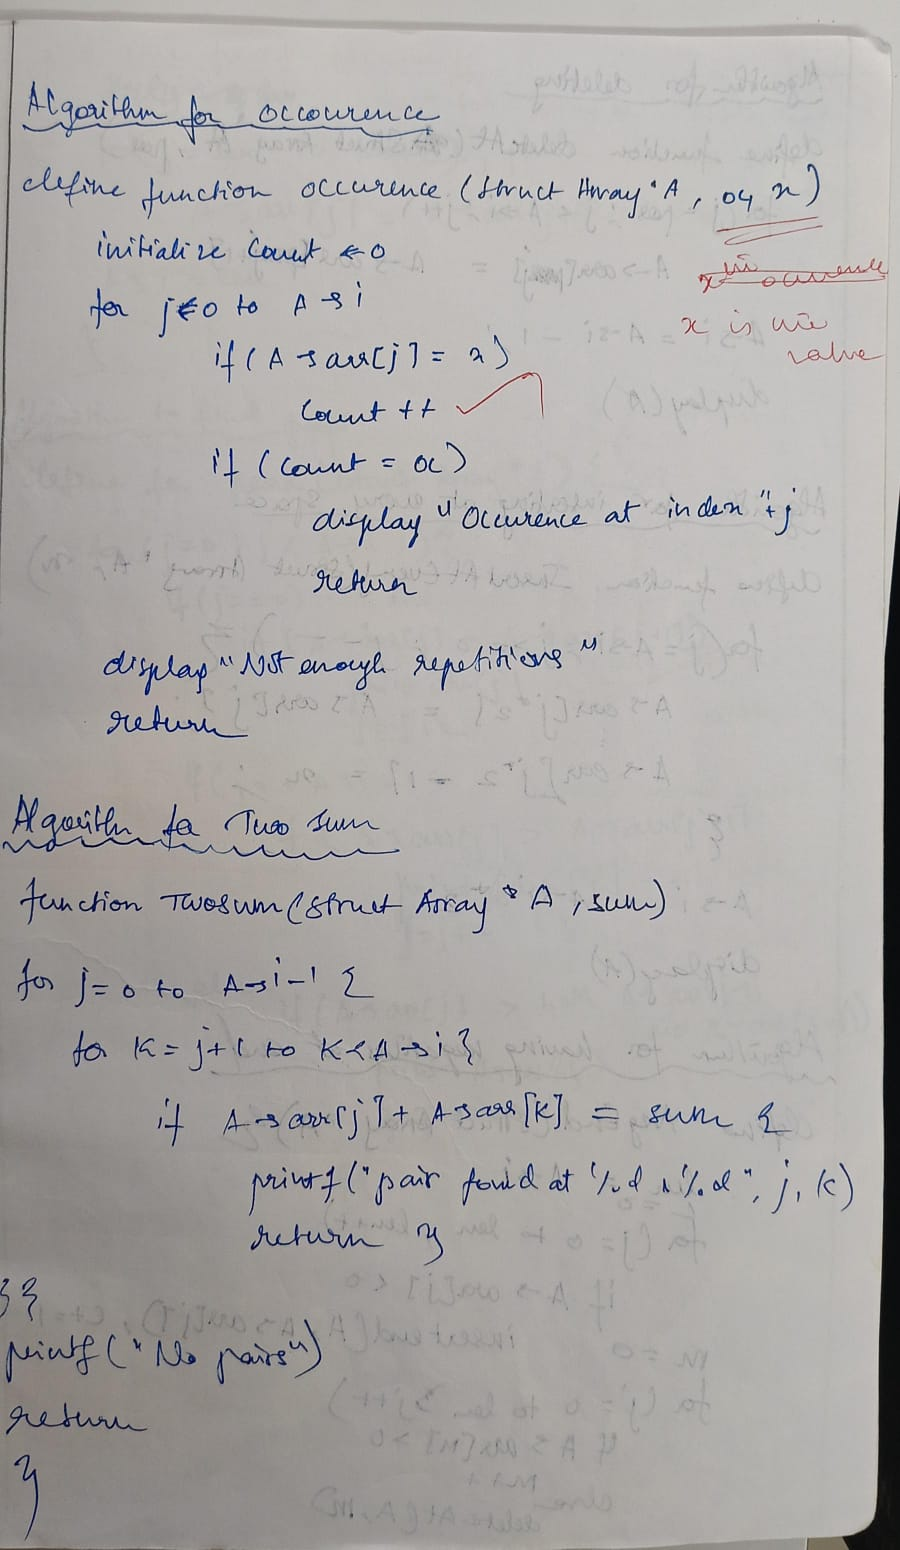 Algorithm for occourence
define function occurence (struct Array *A, oc, x)
initialize count ← 0
for j ← 0 to A → i
if (A → arr[j] = x)
count ++
if (count = oc)
display "Occurence at index" + j
return
display "Not enough repetitions"
return
x is
value
Algorithm for Two sum
function Twosum (struct Array * A, sum)
for j = 0 to A → i - 1 {
for K = j + 1 to K < A → i {
if A → arr[j] + A → arr[k] = sum {
printf ("pair found at %d & %d", j, k)
return }
}}
printf ("No pairs")
return
}